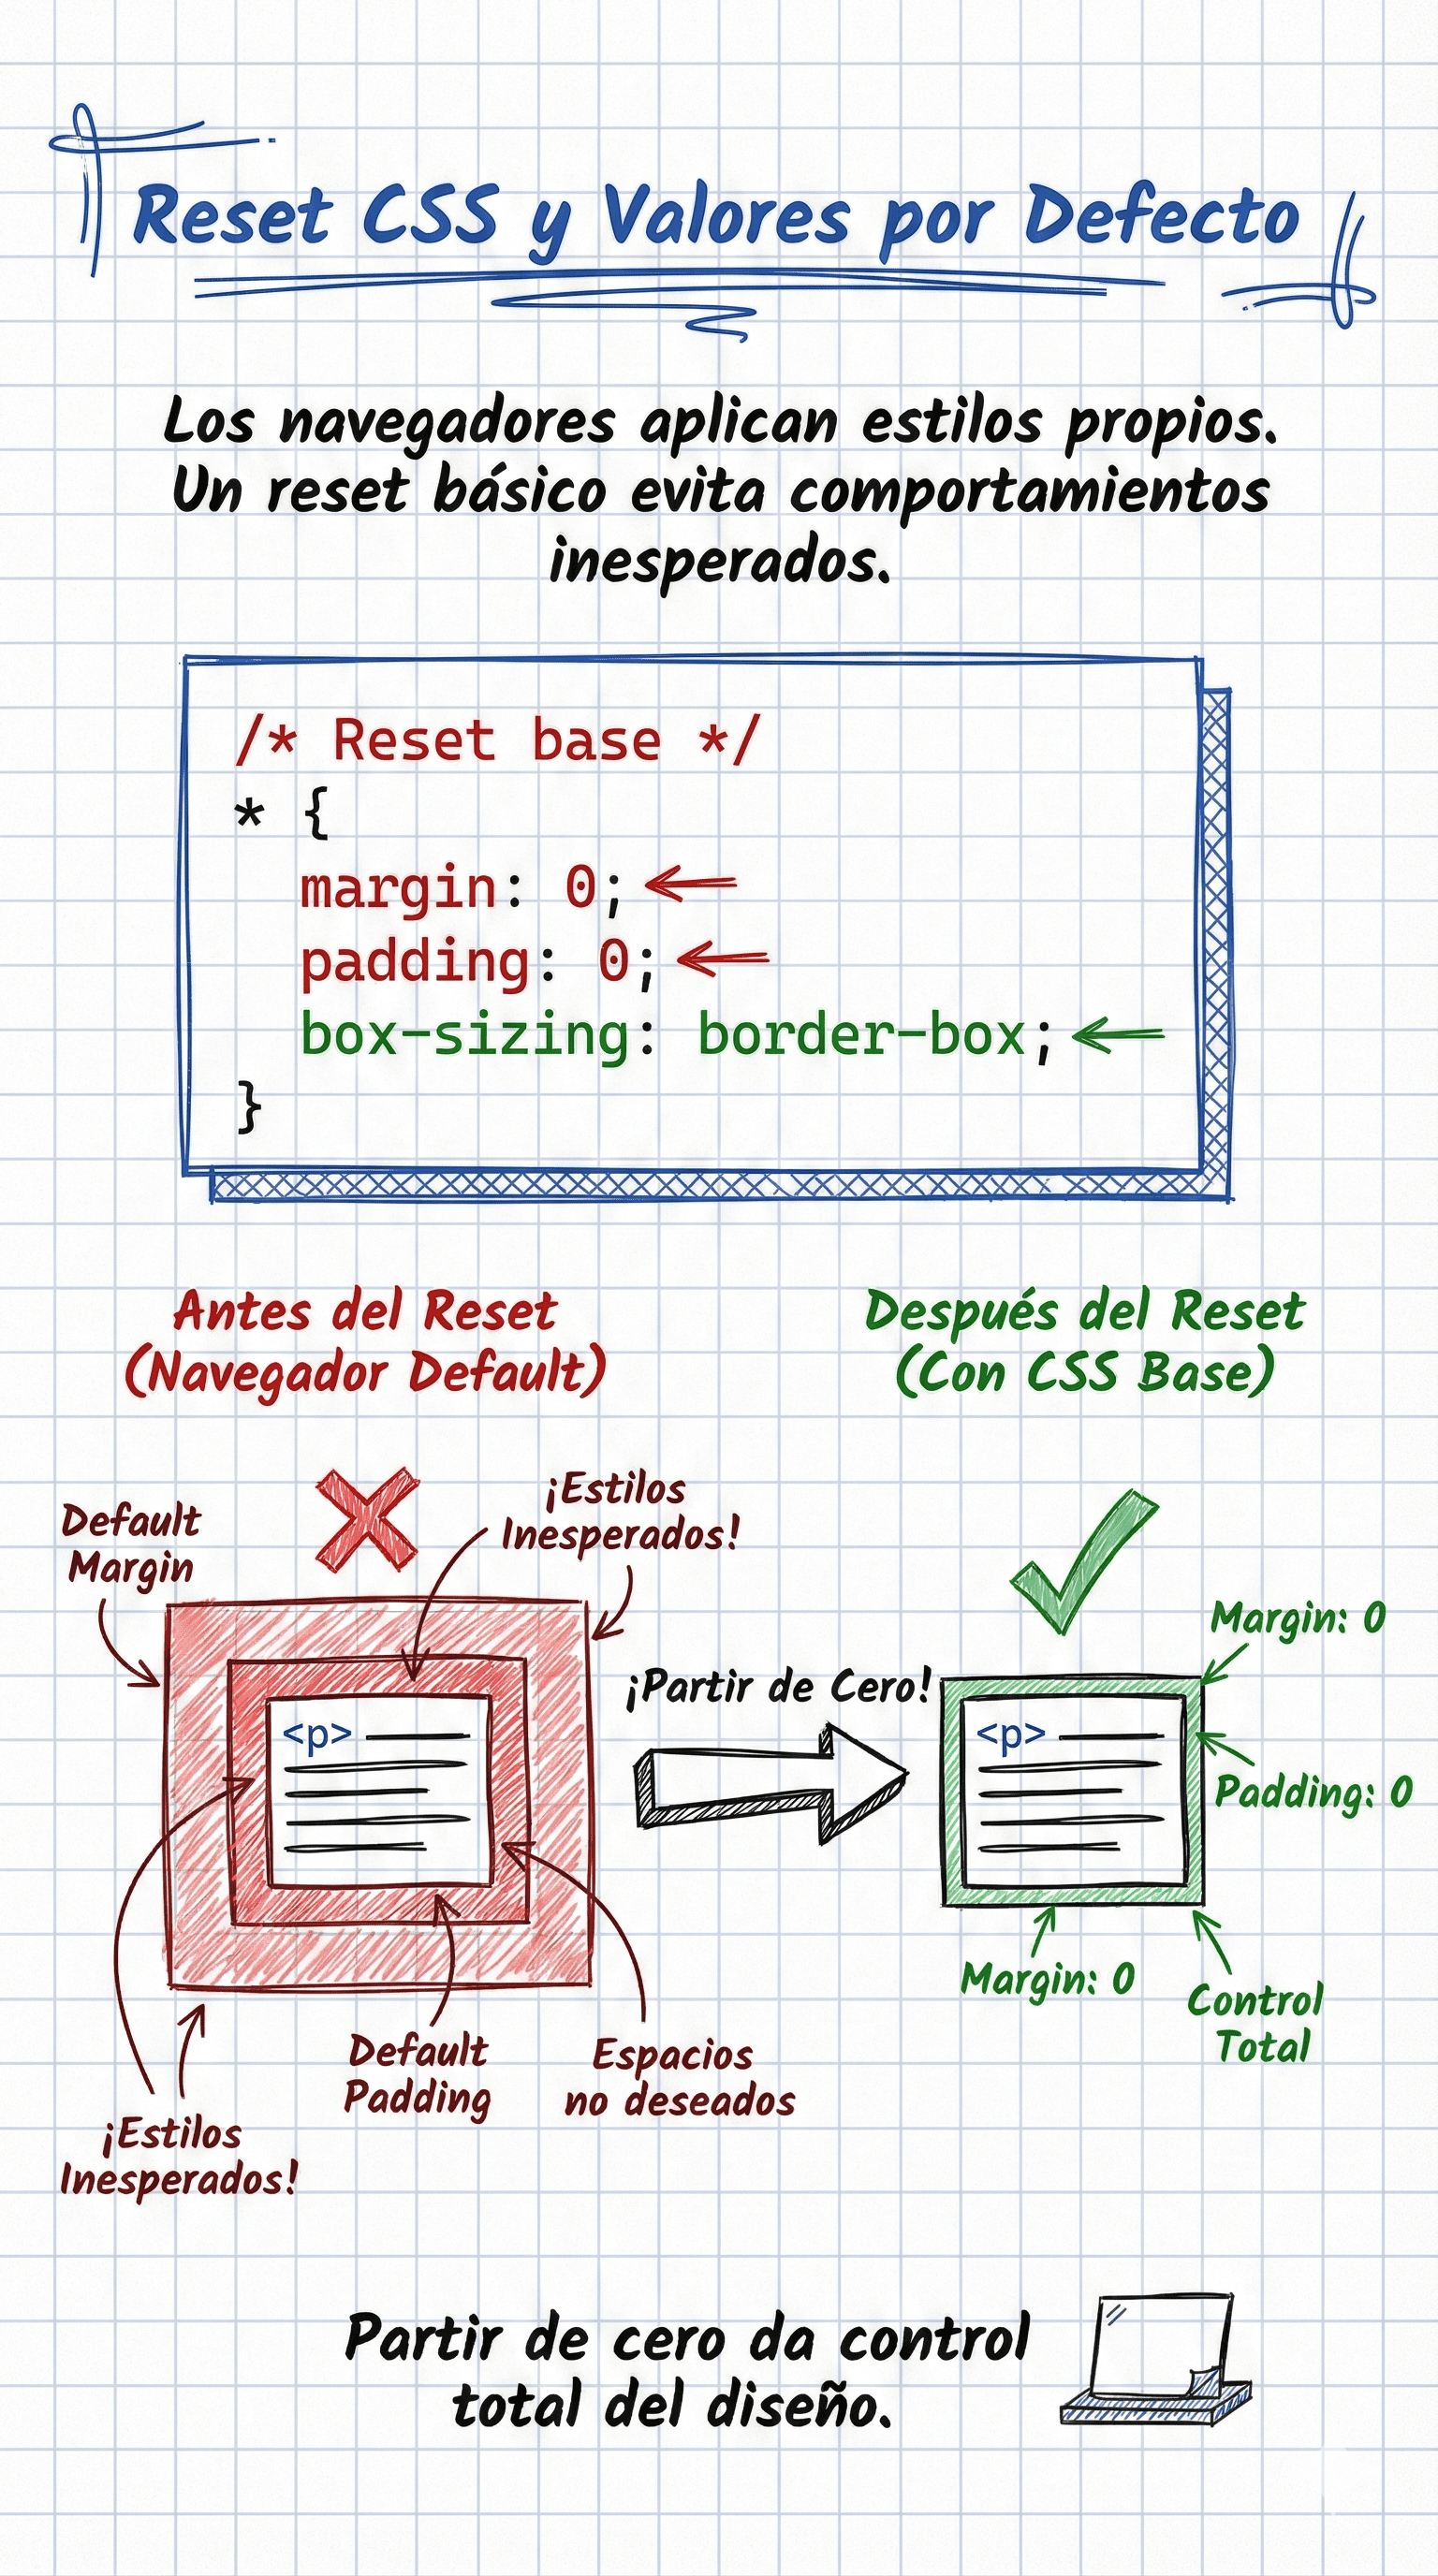 Reset CSS y Valores por Defecto
Los navegadores aplican estilos propios.
Un reset básico evita comportamientos
inesperados.
/* Reset base */
* {
margin: 0;
padding: 0;
box-sizing: border-box;
}
Antes del Reset
(Navegador Default)
Default
Margin
¡Estilos
Inesperados!
<p>
Default
Padding
Espacios
no deseados
¡Estilos
Inesperados!
¡Partir de Cero!
Después del Reset
(Con CSS Base)
Margin: 0
<p>
Padding: 0
Margin: 0
Control
Total
Partir de cero da control
total del diseño.